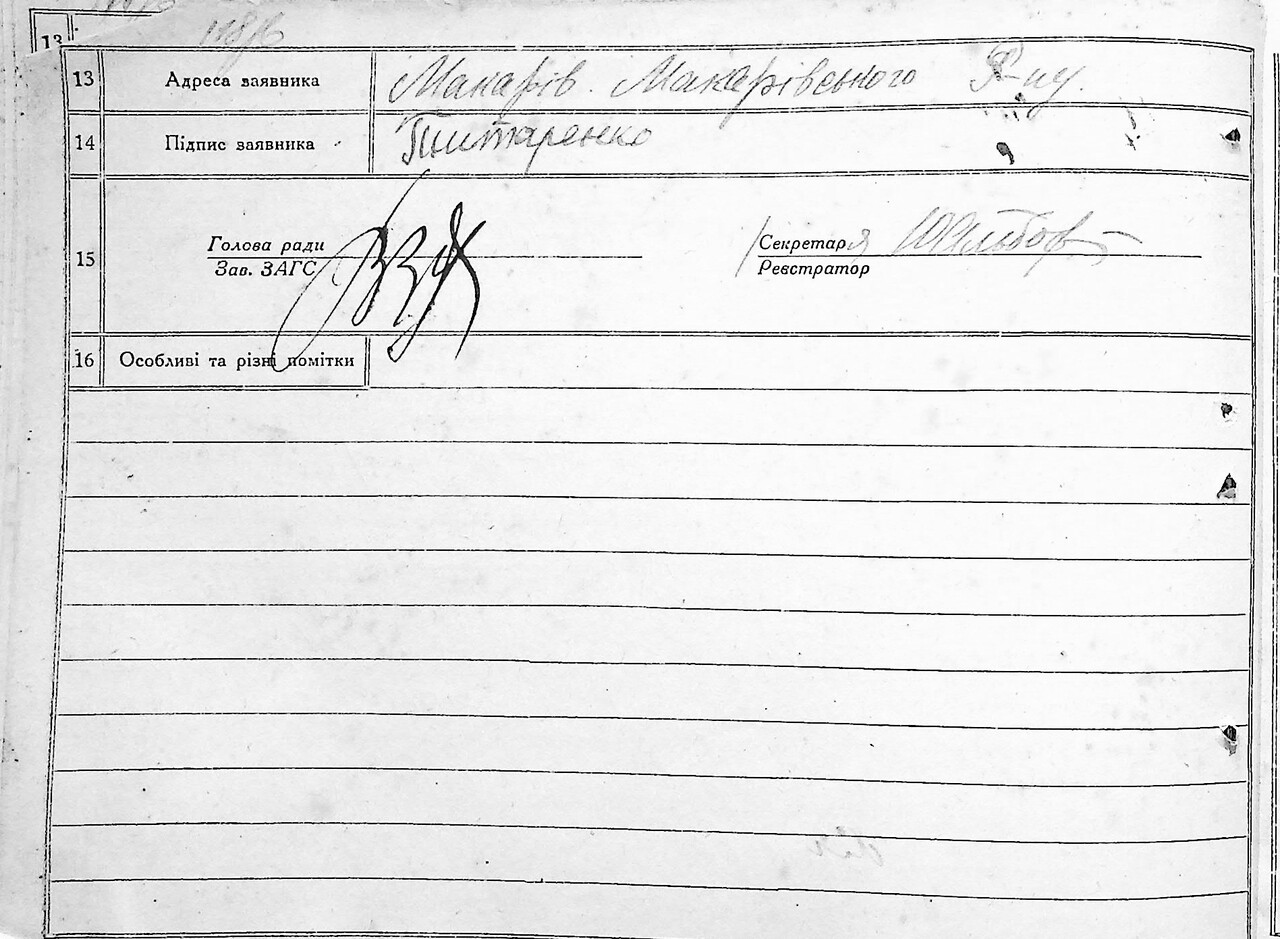 13
13 Адреса заявника Макарів. Макарівського Р-ну.
14 Підпис заявника
15 Голова ради
Зав. ЗАГС
Секретар
Реєстратор
16 Особливі та різні помітки